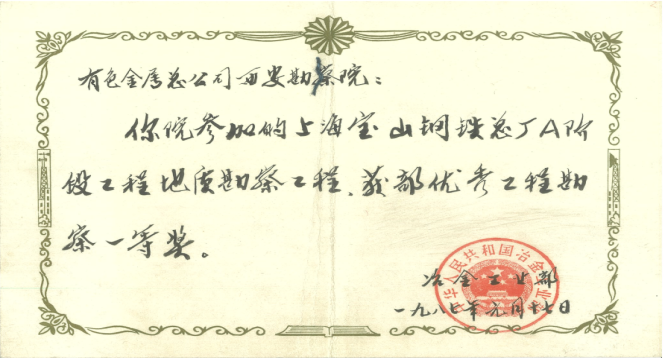 有色金属总公司西安勘察院：
你院参加的上海宝山钢铁总厂A阶
段工程地质勘察工程，获部优秀工程勘
察一等奖。
中华人民共和国冶金工业部
冶金工业部
一九八七年元月十七日